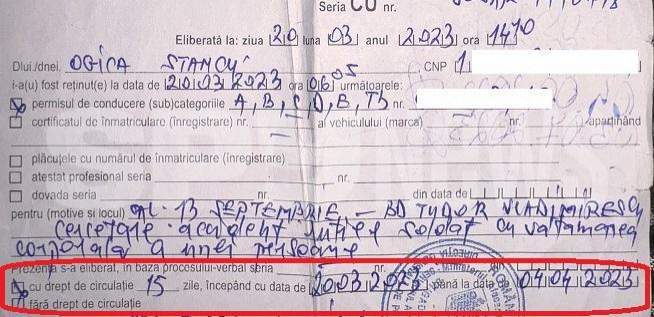 Seria CU nr.
Eliberată la: ziua 20 luna 03 anul 2023 ora 1410
Dlui./dnei. OGICA STANCU , CNP 1
i-a(u) fost reținut(e) la data de 20 03 2023 ora 06 05 următoarele:
permisul de conducere (sub)categoriile A, B, C, D, E, Tb nr.
certificatul de înmatriculare (înregistrare) nr. al vehiculului (marca) nr. aparținând
plăcuțele cu numărul de înmatriculare (înregistrare)
atestat profesional seria nr.
dovada seria nr. din data de
pentru (motive și locul) 13 SEPTEMBRIE – BD TUDOR VLADIMIRESCU
cercetare accident rutier soldat cu vatamarea
corporala a unei persoane
Prezenta s-a eliberat, în baza procesului-verbal seria nr.
cu drept de circulație 15 zile, începând cu data de 20 03 2023 până la data 04 04 2023
fără drept de circulație